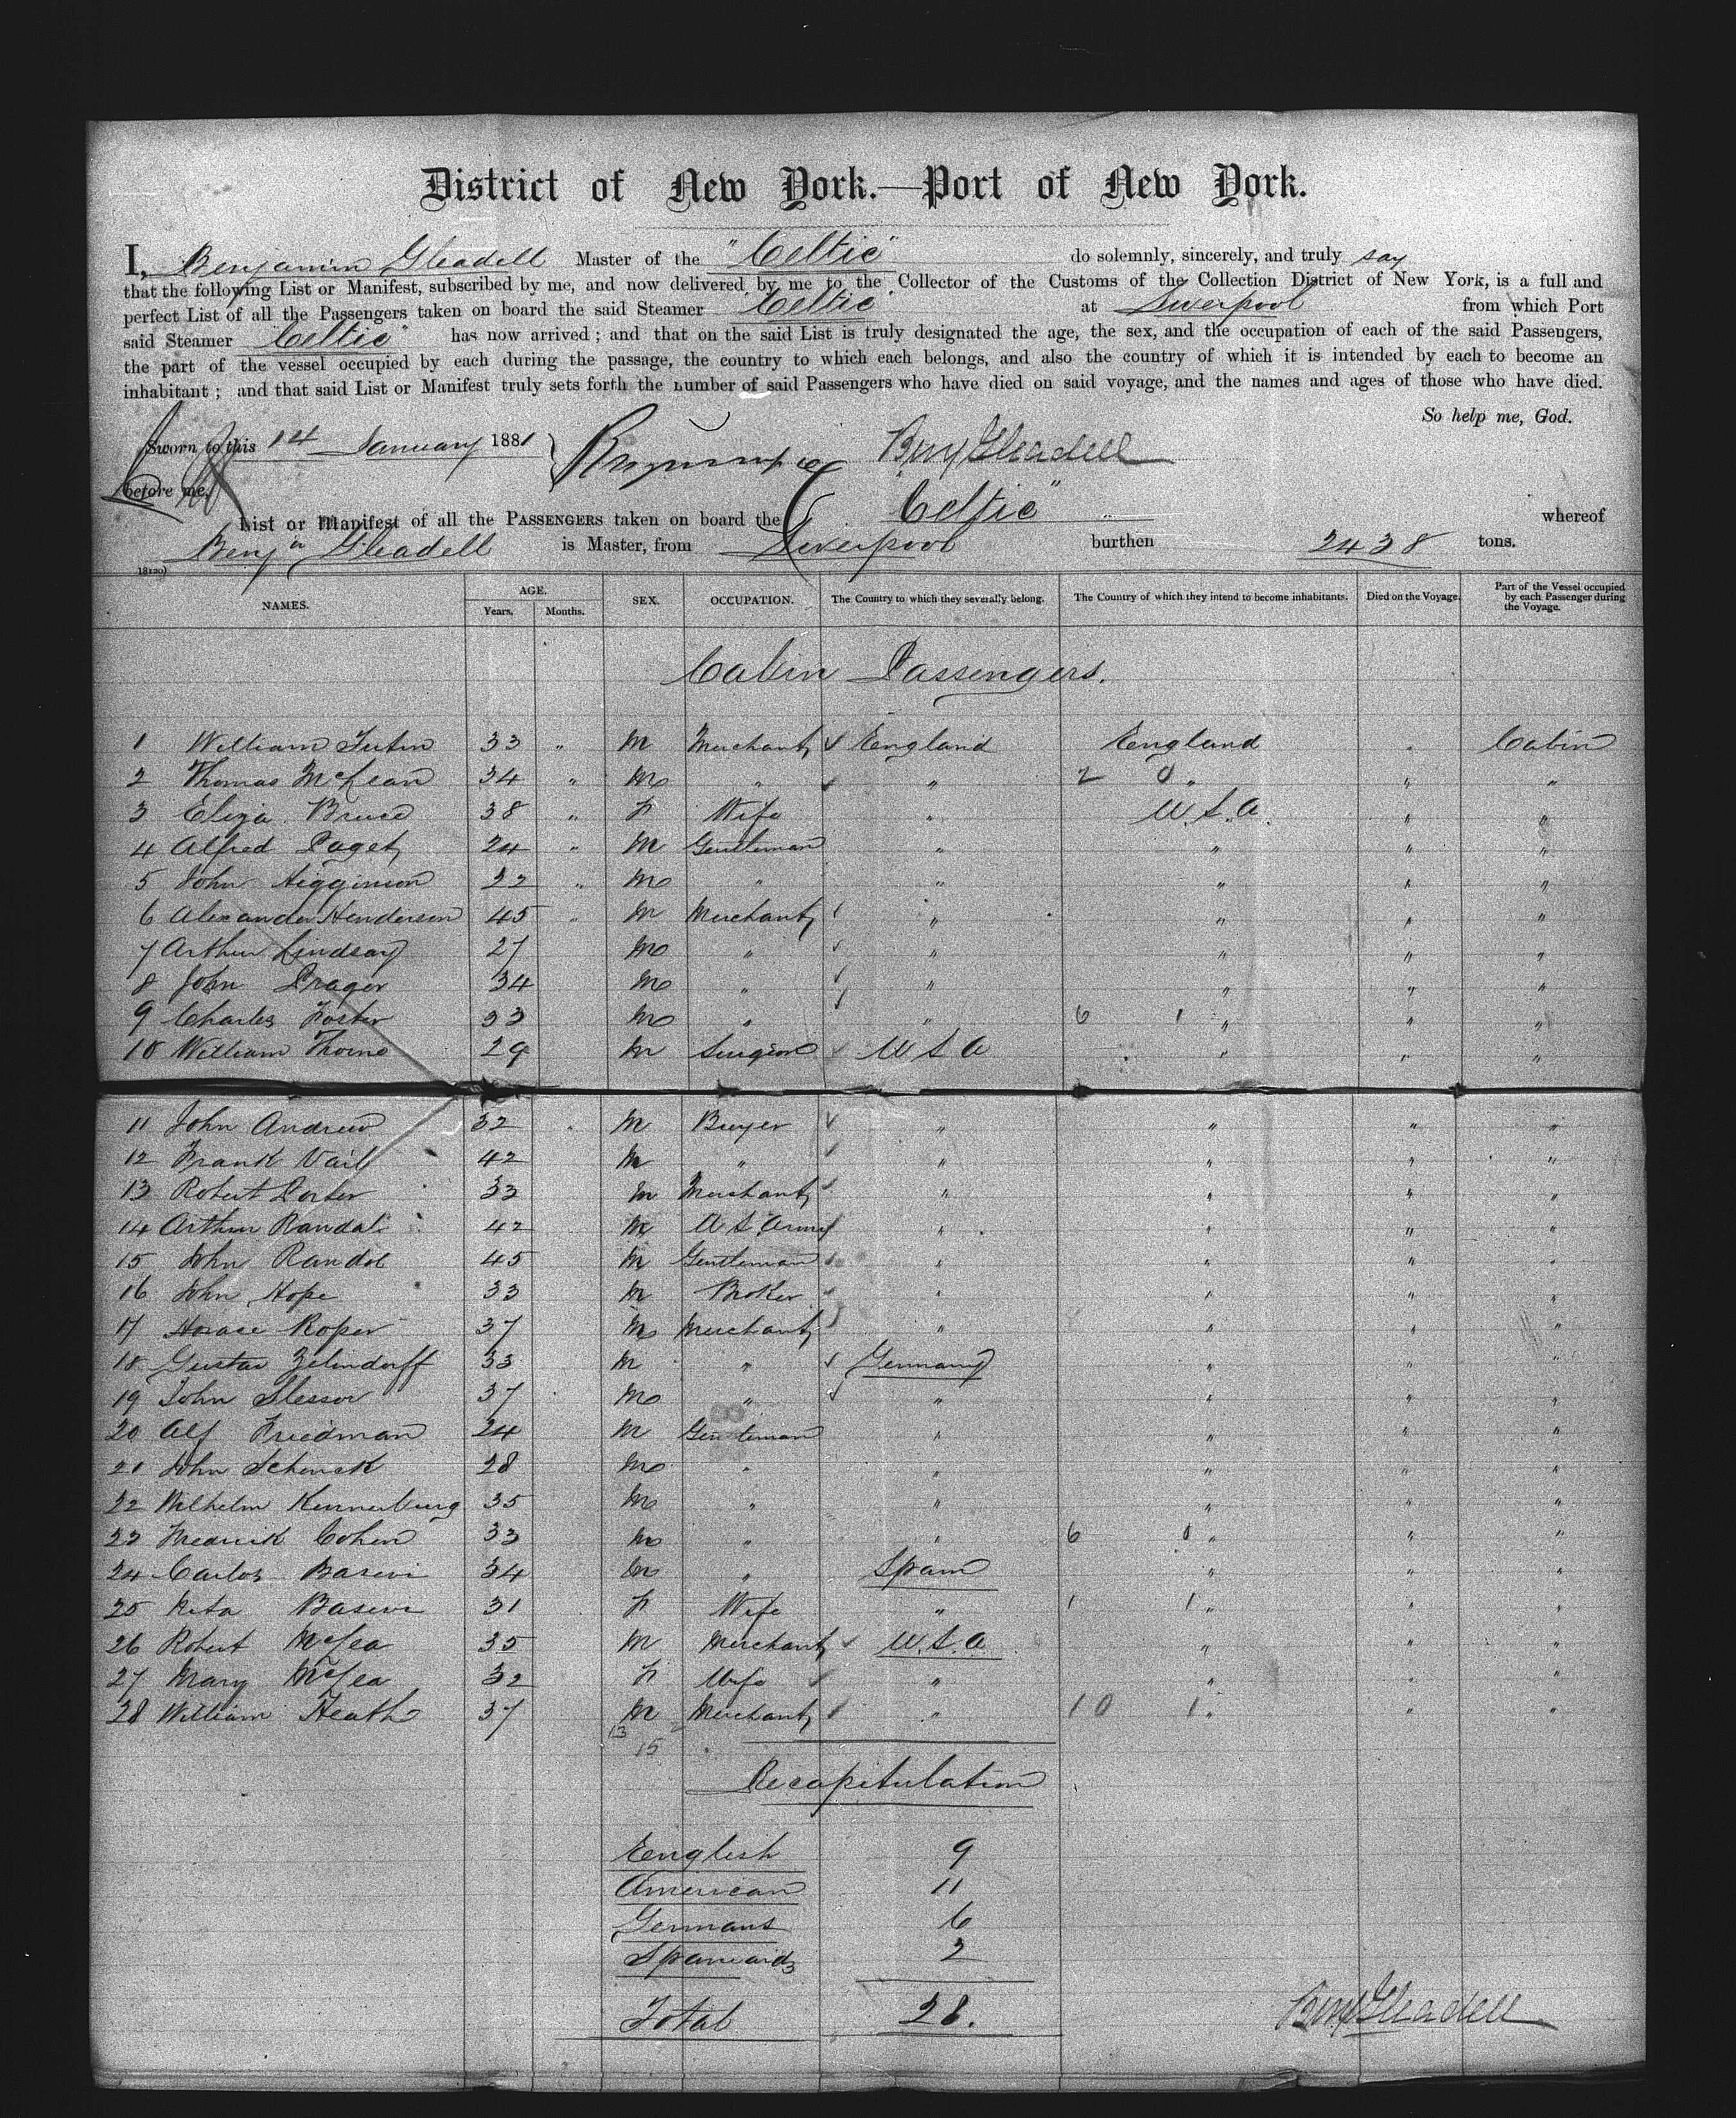 District of New York.—Port of New York.
I, Benjamin Gleadell Master of the "Celtic" do solemnly, sincerely, and truly say
that the following List or Manifest, subscribed by me, and now delivered by me to the Collector of the Customs of the Collection District of New York, is a full and
perfect List of all the Passengers taken on board the said Steamer "Celtic" at Liverpool from which Port
said Steamer "Celtic" has now arrived; and that on the said List is truly designated the age, the sex, and the occupation of each of the said Passengers,
the part of the vessel occupied by each during the passage, the country to which each belongs, and also the country of which it is intended by each to become an
inhabitant; and that said List or Manifest truly sets forth the number of said Passengers who have died on said voyage, and the names and ages of those who have died.
So help me, God.
Sworn to this 14 January 1881 Benj Gleadell
before me,
List or Manifest of all the PASSENGERS taken on board the "Celtic" whereof
Benjn Gleadell is Master, from Liverpool burthen 2438 tons.
18120)
NAMES. AGE. Years. Months. SEX. OCCUPATION. The Country to which they severally belong. The Country of which they intend to become inhabitants. Died on the Voyage. Part of the Vessel occupied by each Passenger during the Voyage.
Cabin Passengers.
1 William Tutin 33 " M Merchant England England " Cabin
2 Thomas McLean 34 " M " " 2 0 " " "
3 Eliza Bruce 38 " F Wife " U.S.A. " "
4 Alfred Paget 24 " M Gentleman " " " "
5 John Higginson 22 " M " " " " "
6 Alexander Henderson 45 " M Merchant " " " "
7 Arthur Lindsay 27 M " " " " "
8 John Prager 34 M " " " " "
9 Charles Foster 33 M " " 6 1 " " "
10 William Thorne 29 M Surgeon U S A " " "
11 John Andrew 32 M Buyer " " " "
12 Frank Vail 42 M " " " " "
13 Robert Porter 33 M Merchant " " " "
14 Arthur Randal 42 M U S Army " " " "
15 John Randol 45 M Gentleman " " " "
16 John Hope 33 M Broker " " " "
17 Horace Roper 37 M Merchant " " " "
18 Gustav Zelindorff 33 M " Germany " " "
19 John Slessor 37 M " " " " "
20 Alf Friedman 24 M Gentleman " " " "
21 John Schenck 28 M " " " " "
22 Wilhelm 35 M " " " " "
23 Fredrick Cohen 33 M " " 6 1 " " "
24 Carlos Basevi 34 M " Spain " " "
25 Rita Basevi 31 F Wife " 1 1 " " "
26 Robert McLea 35 M Merchant U.S.A " " "
27 Mary McLea 32 F Wife " " " "
28 William Heath 37 M Merchant " 10 1 " " "
13 2
15
Recapitulation
English 9
American 11
Germans 6
Spaniards 2
Total 28.
Benj Gleadell